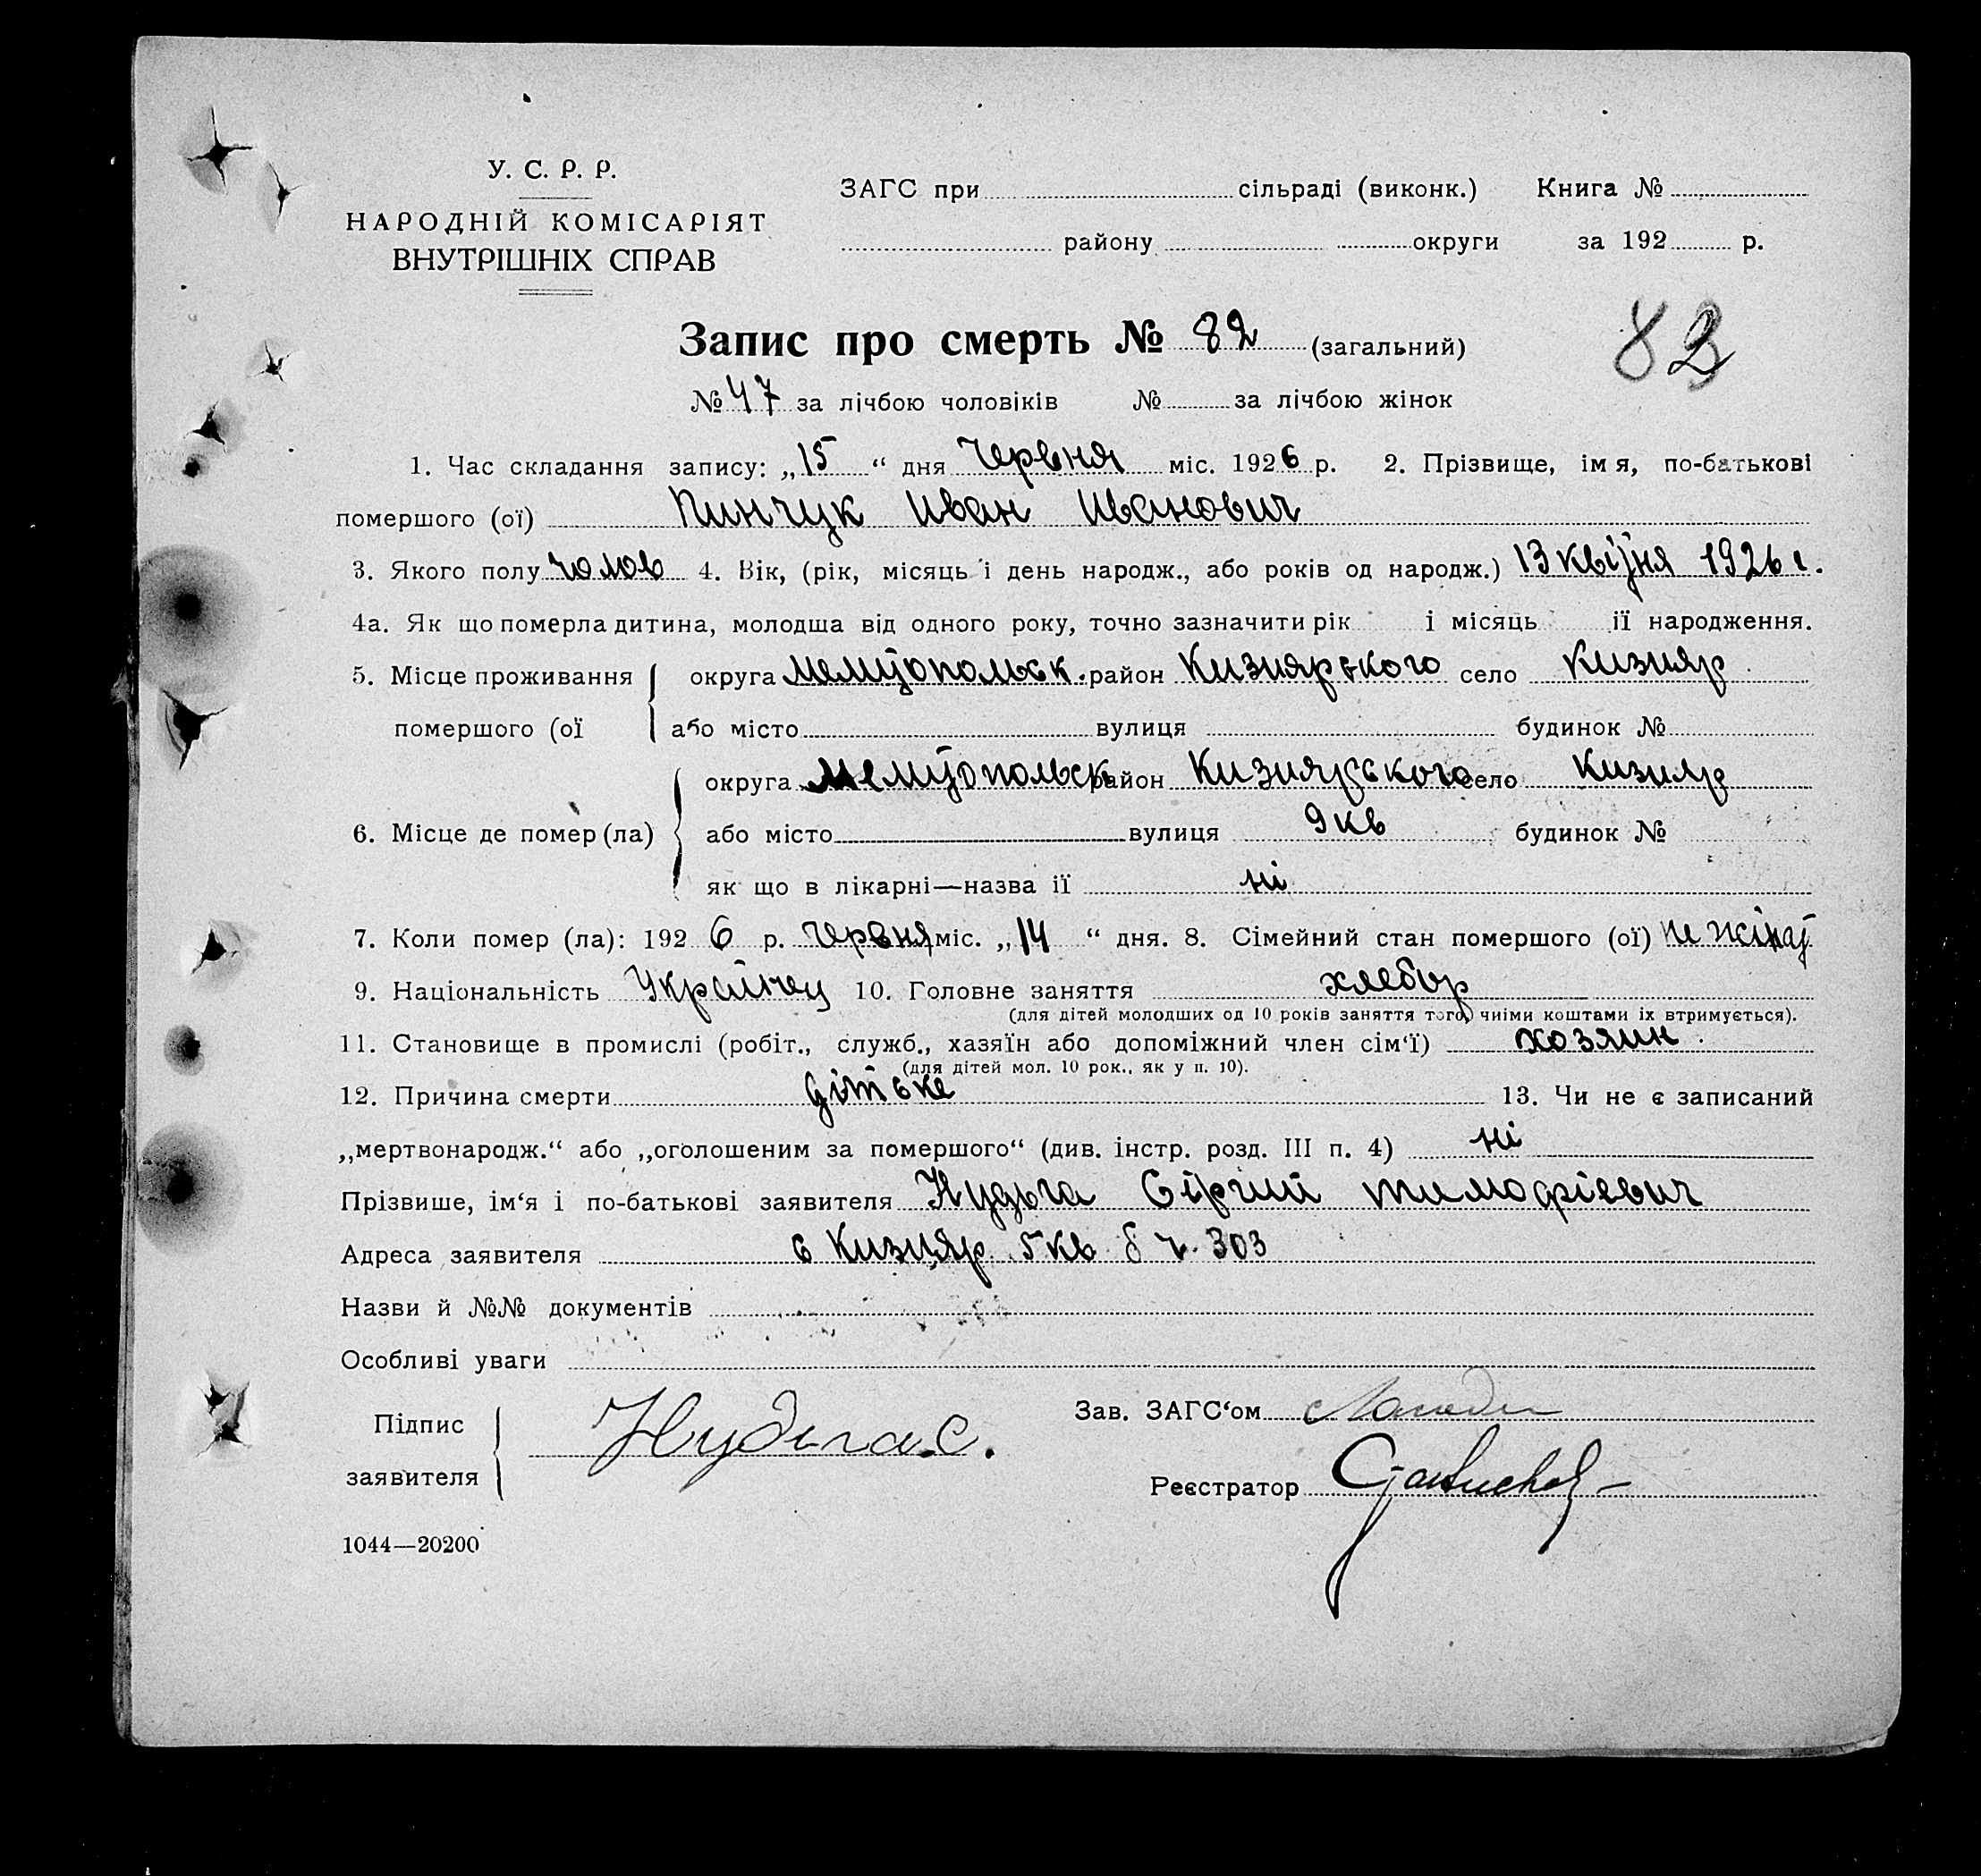 У. С. Р. Р.
НАРОДНІЙ КОМІСАРІЯТ
ВНУТРІШНІХ СПРАВ
ЗАГС при сільраді (виконк.) Книга №
району округи за 192 р.
Запис про смерть № 82 (загальний)
83
№ 47 за лічбою чоловіків № за лічбою жінок
1. Час складання запису: „15“ дня Червня міс. 1926 р. 2. Прізвище, імя, по-батькові
помершого (ої) Пинчук Иван Иванович
3. Якого полу чолов 4. Вік, (рік, місяць і день народж., або років од народж.) 13 квітня 1926 г.
4а. Як що померла дитина, молодша від одного року, точно зазначити рік і місяць її народження.
5. Місце проживання округа Мелитопольск. район Кизиярського село Кизияр
помершого (ої або місто вулиця будинок №
округа Мелитопольск район Кизиярського село Кизияр
6. Місце де помер (ла) або місто вулиця 9 кв будинок №
як що в лікарні—назва її ні
7. Коли помер (ла): 1926 р. Червня міс. „14“ дня. 8. Сімейний стан помершого (ої) не жінат
9. Національність Українец 10. Головне заняття хлебор
(для дітей молодших од 10 років заняття того, чиїми коштами їх втримується).
11. Становище в промислі (робіт., служб., хазяїн або допоміжний член сім‘ї) хозяин.
(для дітей мол. 10 рок., як у п. 10).
12. Причина смерти дітське 13. Чи не є записаний
„мертвонародж.“ або „оголошеним за помершого“ (див. інстр. розд. III п. 4) ні
Прізвише, ім‘я і по-батькові заявителя Нудьга Сіргий тимофіевич
Адреса заявителя с Кизияр 5 кв 303
Назви й №№ документів
Особливі уваги
Підпис
заявителя
Нудьга С.
Зав. ЗАГС‘ом
Реєстратор
1044—20200